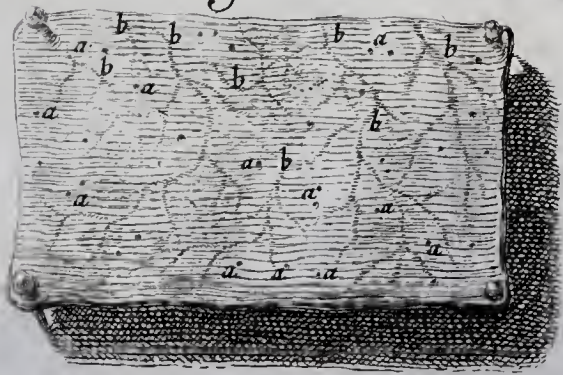 b b b a b
a b b
a a b
a b
a a a
a
a a a